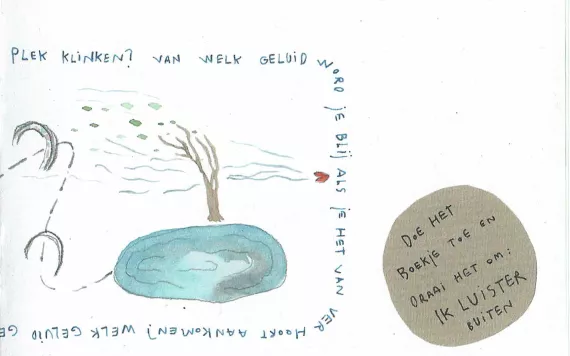 PLEK KLINKEN? VAN WELK GELUID
WORD JE BLIJ ALS JE HET VAN VER
HOORT AANKOMEN? WELK GELUID
DOE HET
BOEKJE TOE EN
DRAAI HET OM:
IK LUISTER
BUITEN